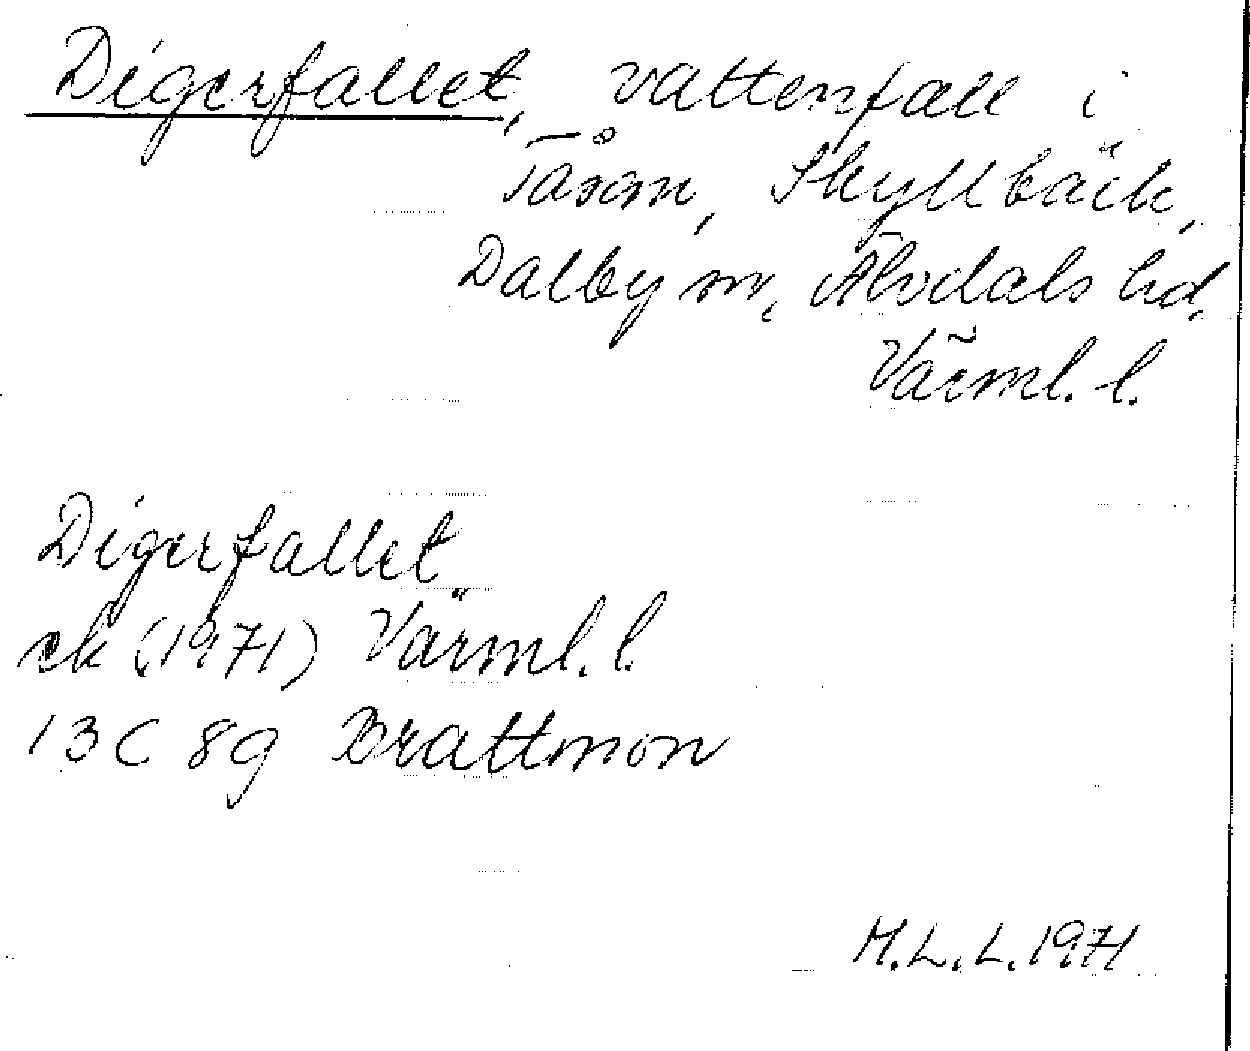 Digerfallet, vattenfall i
Tåsan, Skyllbäck,
Dalby sn, Älvdals hd,
Värml. l.
Digerfallet
ek (1971) Värml. l.
13C 8g Brattmon
M.L.L. 1971